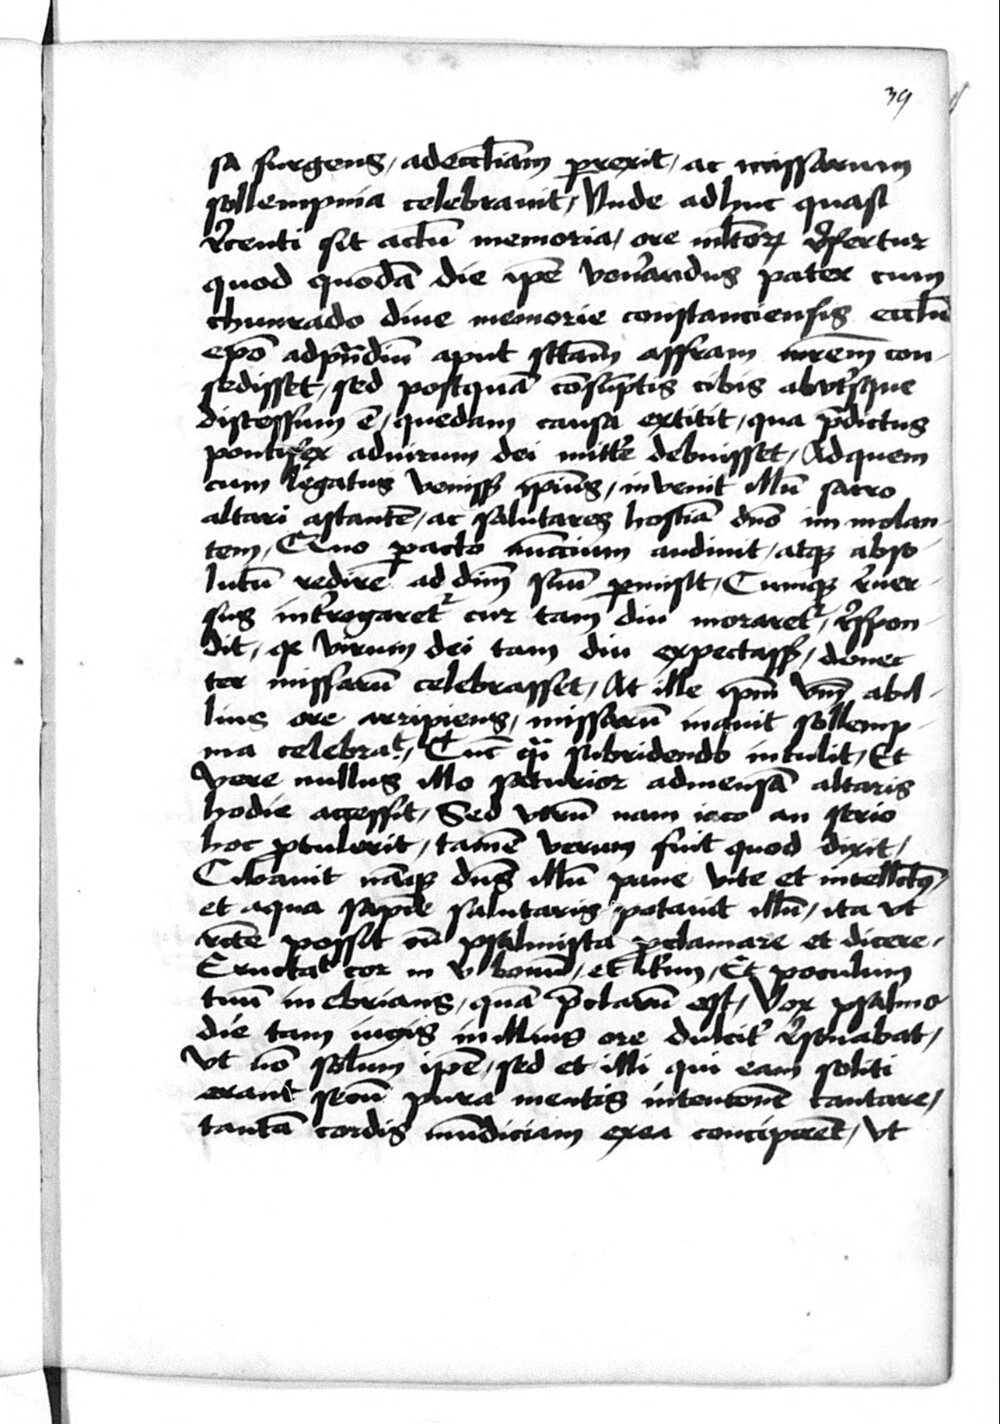 39
sa surgens, ad eccl̄iam perrexit, ac missarum
sollempnia celebrauit, Vnde adhuc quasi
r̓centi sit actū memoria, ore mltorꝝ r̓fertur
quod quodā die ip̄e ven̓andus pater cum
chunrado diue memorie constanciensis eccl̄ie
ep̄o ad pn̄diū aput sc̄tam affram mr̄em con-
sedisset, sed postquā cōsūptis cibis ab vtr̓sque
discessum ē, quedam causa extitit, qua p̄dictus
pontifex ad virum dei mitt̓e debuisset, Ad quem
cum legatus veniss; ip̄ius, inuenit illū sacro
altari astantē, ac salutares hostiā dn̄o im molan-
tem, Quo ꝑacto nūccium audiuit, atqꝫ abso-
lutū redire ad dn̄m suū ꝑmisit, Cumqꝫ r̓uer-
sus int̓rogaret᷑ cur tam diu moraret᷑, r̓spon-
dit, qꝫ virum dei tam diu expectass;, donec
ter missarū celebrasset, At ille ip̄m v̄m ab il-
lius ore arripiens, missarū inquit sollemp-
nia celebrat, Tūc q̄si subridendo intulit, Et
vere nullus illo saturior ad mensā altaris
hodie accessit, Sed vtrū nam ioco an serio
hoc ꝓtulerit, tamē verum fuit quod dixit,
Cibauit nāqꝫ dn̄s illū pane vite et intellc̄tꝰ,
et aqua sapīe salutaris potauit illū, ita vt
r̓cte possit cū psalmista ꝓclamare et dicere,
Eructat cor m v bonū, et it̓um, Et poculum
tuū inebrians, quā p̄clarū est, Vox psalmo
die tam iugis in illius ore dulcit̓ r̓sonabat,
vt nō solum ip̄e, sed et illi qui eam soliti
erant secū pura mentis intentionē cantare,
tantā cordis mūdiciam ex ea conciperēt, vt